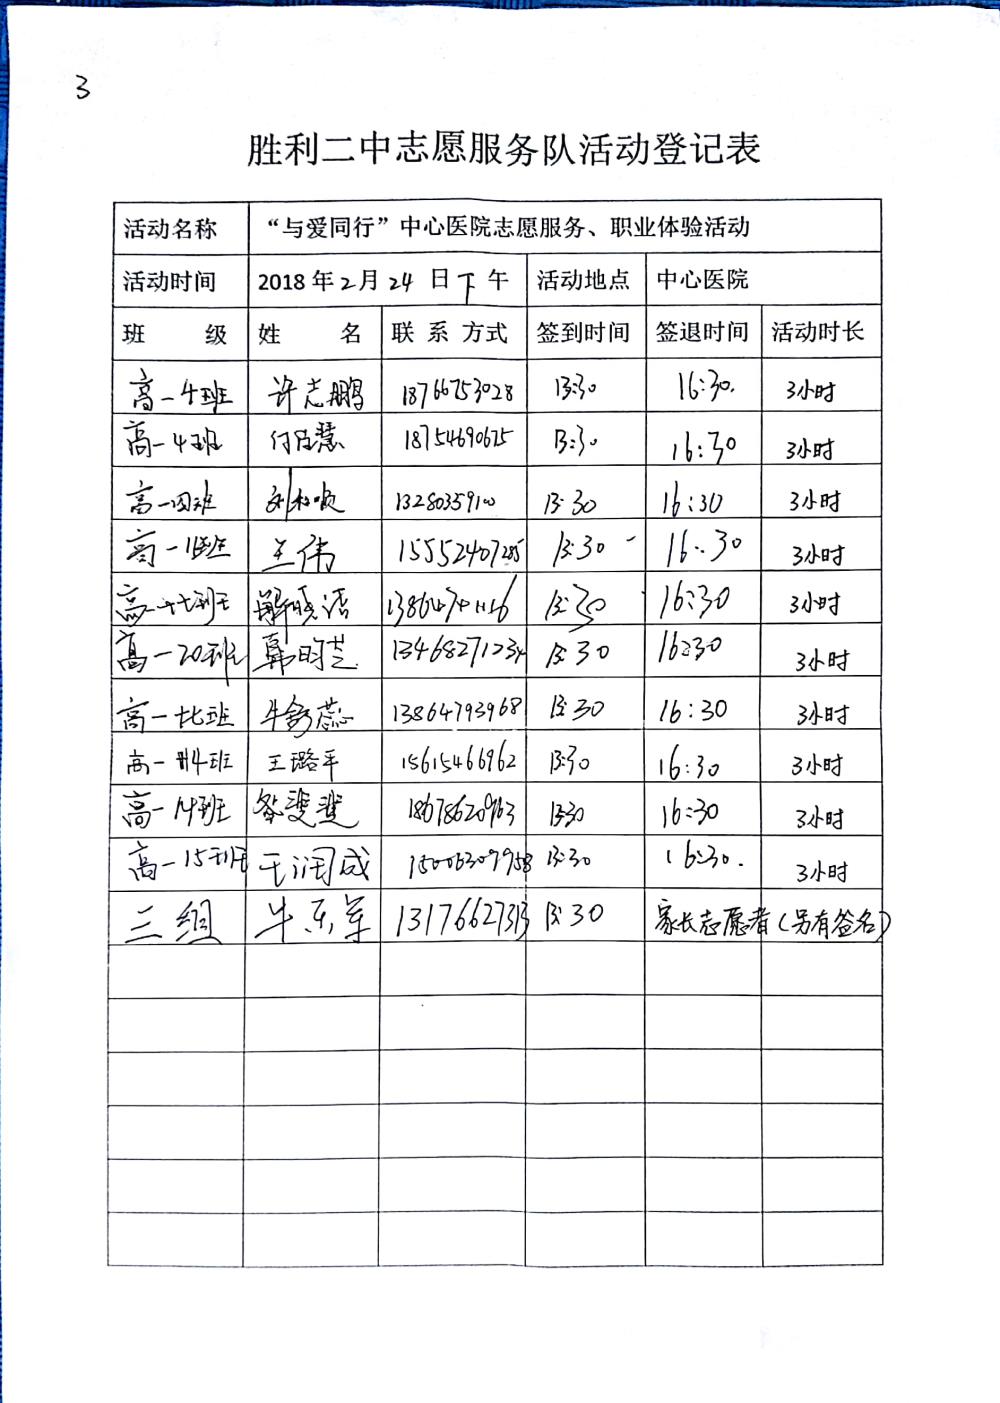 3
胜利二中志愿服务队活动登记表
活动名称 “与爱同行”中心医院志愿服务、职业体验活动
活动时间 2018年2月24日下午 活动地点 中心医院
班 级 姓 名 联系方式 签到时间 签退时间 活动时长
高一4班 许志鹏 18766753028 13:30 16:30. 3小时
高一4班 18754690675 13:30 16:30 3小时
高一四班 13280359100 13:30 16:30 3小时
高一 王伟 15552407285 13:30 16:30 3小时
高一十七班 解晓洁 13:30 16:30 3小时
高一20班 13468271234 13:30 16:30 3小时
高一七班 牛舒蕊 13864793968 13:30 16:30 3小时
高一14班 王璐平 15615466962 13:30 16:30 3小时
高一14班 18678620963 13:30 16:30 3小时
高一15班 王润成 15006309958 13:30 16:30. 3小时
三组 牛东军 13176627313 13:30 家长志愿者(另有签名)